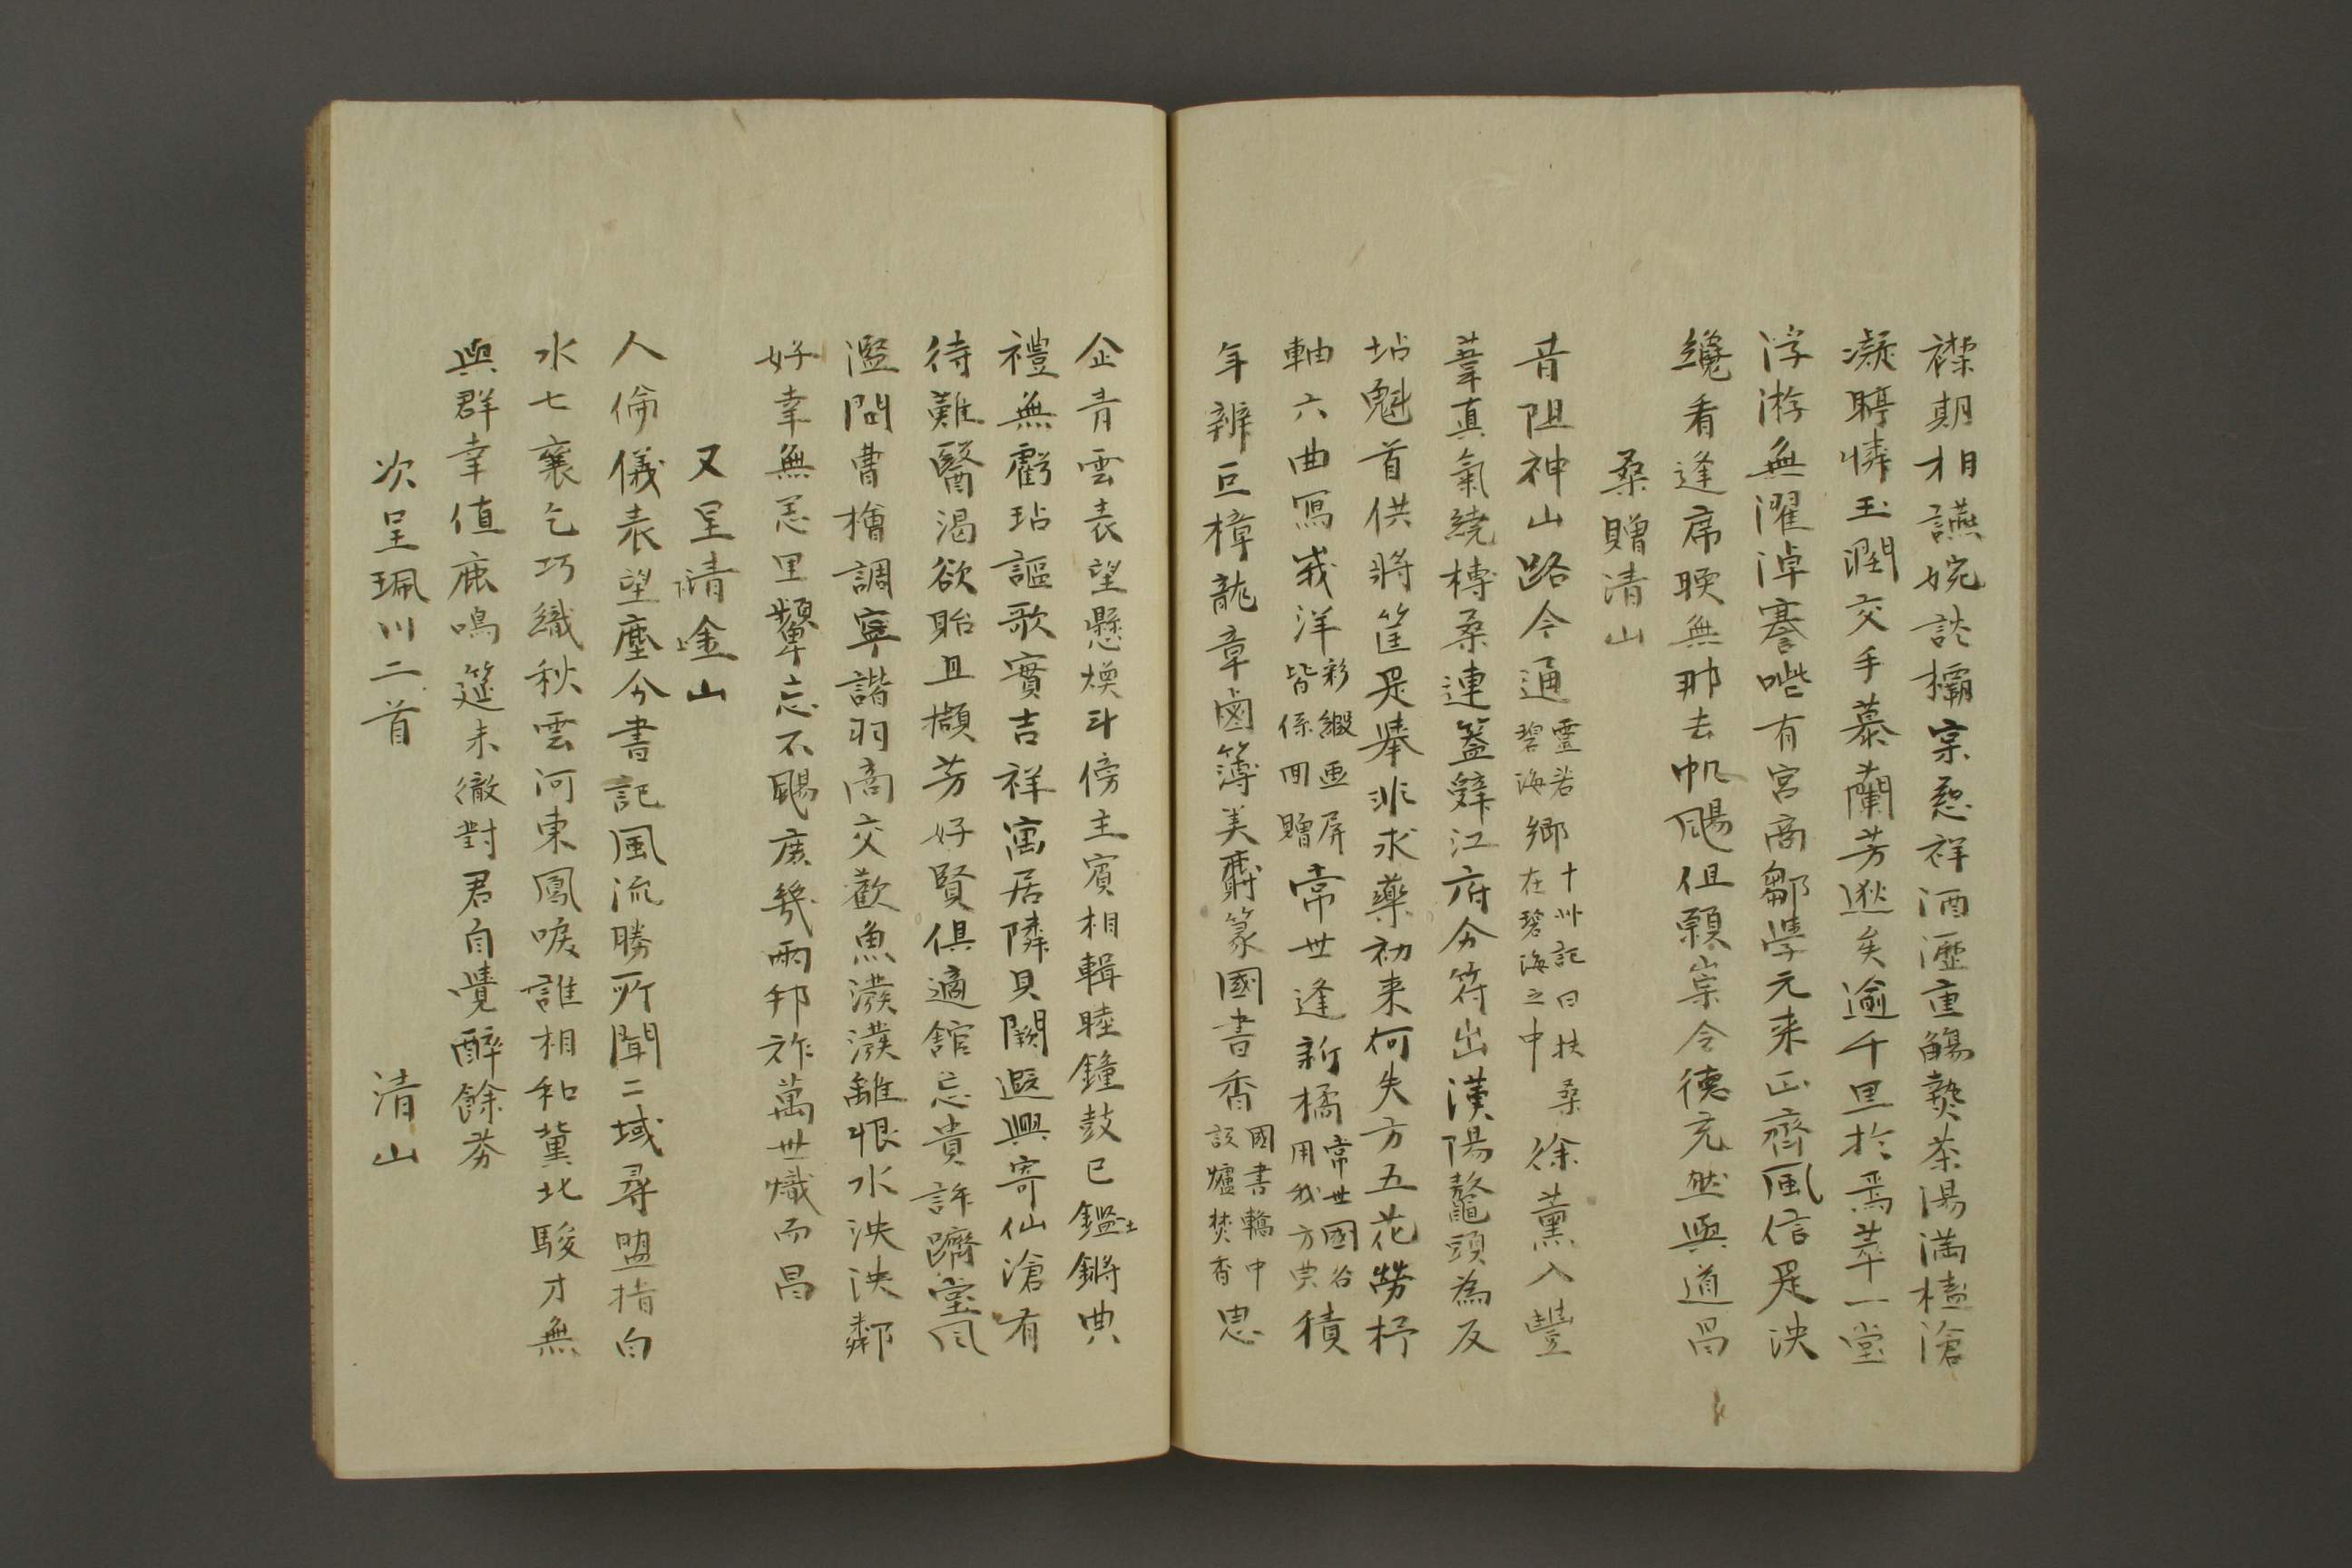 襟期相讌婉談櫹宗愨祥酒瀝重觴爇茶湯満榼滄
凝聘憐玉潤交手慕蘭芳逖矣逾千里於焉萃一堂
浮游無濯淖謇喈有宮商鄒學元来正齊風信是泱
纔看逢席暌無那去帆颺但願崇令德充然與道昌
桑贈清山
昔阻神山路今通靈若碧海鄉十州記曰扶桑在碧海之中徐薰入豐
葦真氣繞榑桑連簦辭江府分符出漢陽鼇頭為反
坫魁首供將筐是舉非求藥初来何失方五花勞杼
軸六曲寫峩洋彩緞画屏皆係回贈常世逢新橘常世國谷用我方典積
年辨巨樟龍章鹵簿美爵篆國書香國書轎中設爐焚香思
企青雲表望懸煥斗傍主賓相輯睦鐘鼓已鑑鏘典
禮無虧玷謳歌實吉祥寓居隣貝闕遐興寄仙滄有
待難醫渴欲貽且擷芳好賢俱適舘忘貴許躋堂風
濫問曹檜調寧諧羽商交歡魚潑潑離恨水泱泱鄰
好幸無恙里顰忘不颺庶幾兩邦祚萬世熾而昌
又呈清崟山
人倫儀表望塵分書記風流勝所聞二域尋盟指白
水七襄乞巧織秋雲河東鳳唳誰相和冀北駿才無
與群幸值鹿鳴筵未徹對君自覺醉餘芬
次呈珮川二首　清山